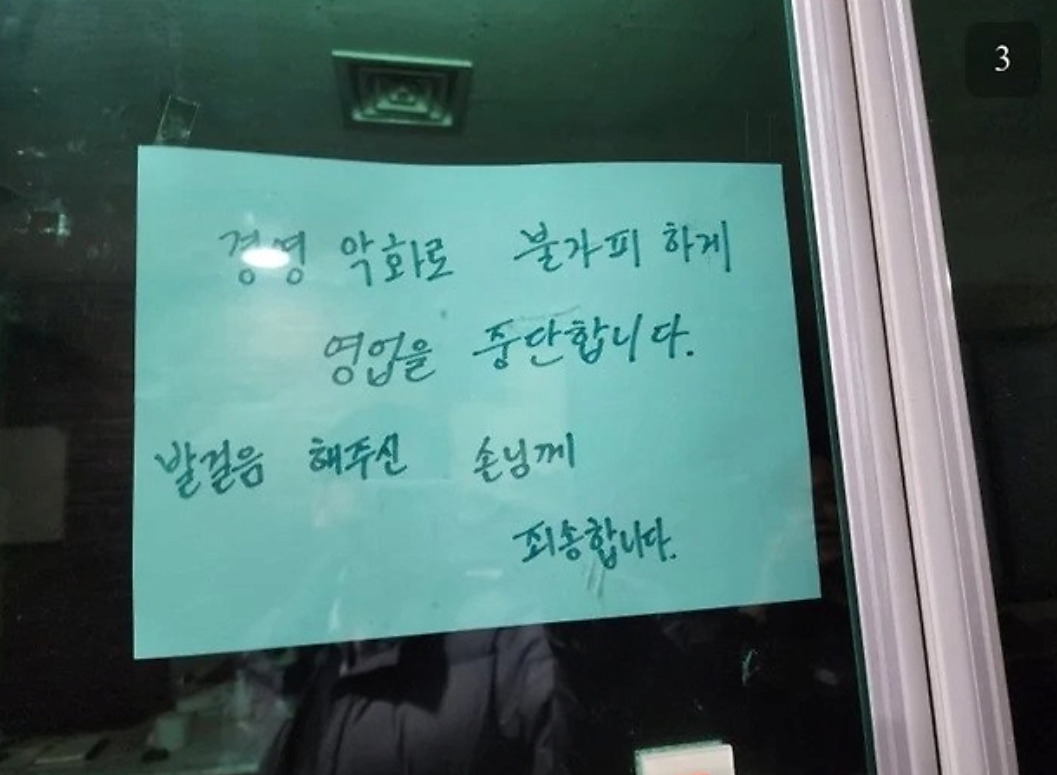 3
경영 악화로 불가피 하게
영업을 중단합니다.
발걸음 해주신 손님께
죄송합니다.